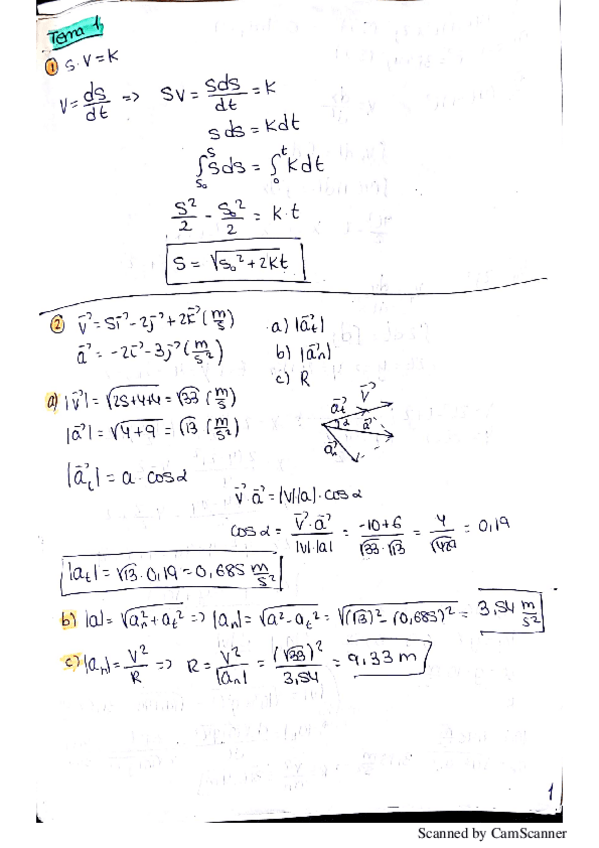 Tema 1
① S·V=K
V = ds/dt => SV = Sds/dt = K
s ds = K dt
∫_{S₀}^{S} s ds = ∫_{0}^{t} K dt
S²/2 - S₀²/2 = K·t
S = √(S₀²+2Kt)
② v⃗ = 5i⃗ - 2j⃗ + 2k⃗ (m/s) a) |a⃗t|
a⃗ = -2i⃗ - 3j⃗ (m/s²) b) |a⃗n|
c) R
a) |v⃗| = √(25+4+4) = √33 (m/s)
|a⃗| = √(4+9) = √13 (m/s²)
a⃗t v⃗ α a⃗ a⃗n
|a⃗t| = a · cosα
v⃗ · a⃗ = |v||a| · cosα
cosα = v⃗·a⃗/|v|·|a| = -10+6/√33·√13 = 4/√429 = 0,19
|at| = √13 · 0,19 = 0,685 m/s²
b) |a| = √(an²+at²) => |an| = √(a²-at²) = √((√13)² - (0,685)²) = 3,54 m/s²
c) |an| = V²/R => R = V²/|an| = (√33)²/3,54 = 9,33 m
1
Scanned by CamScanner